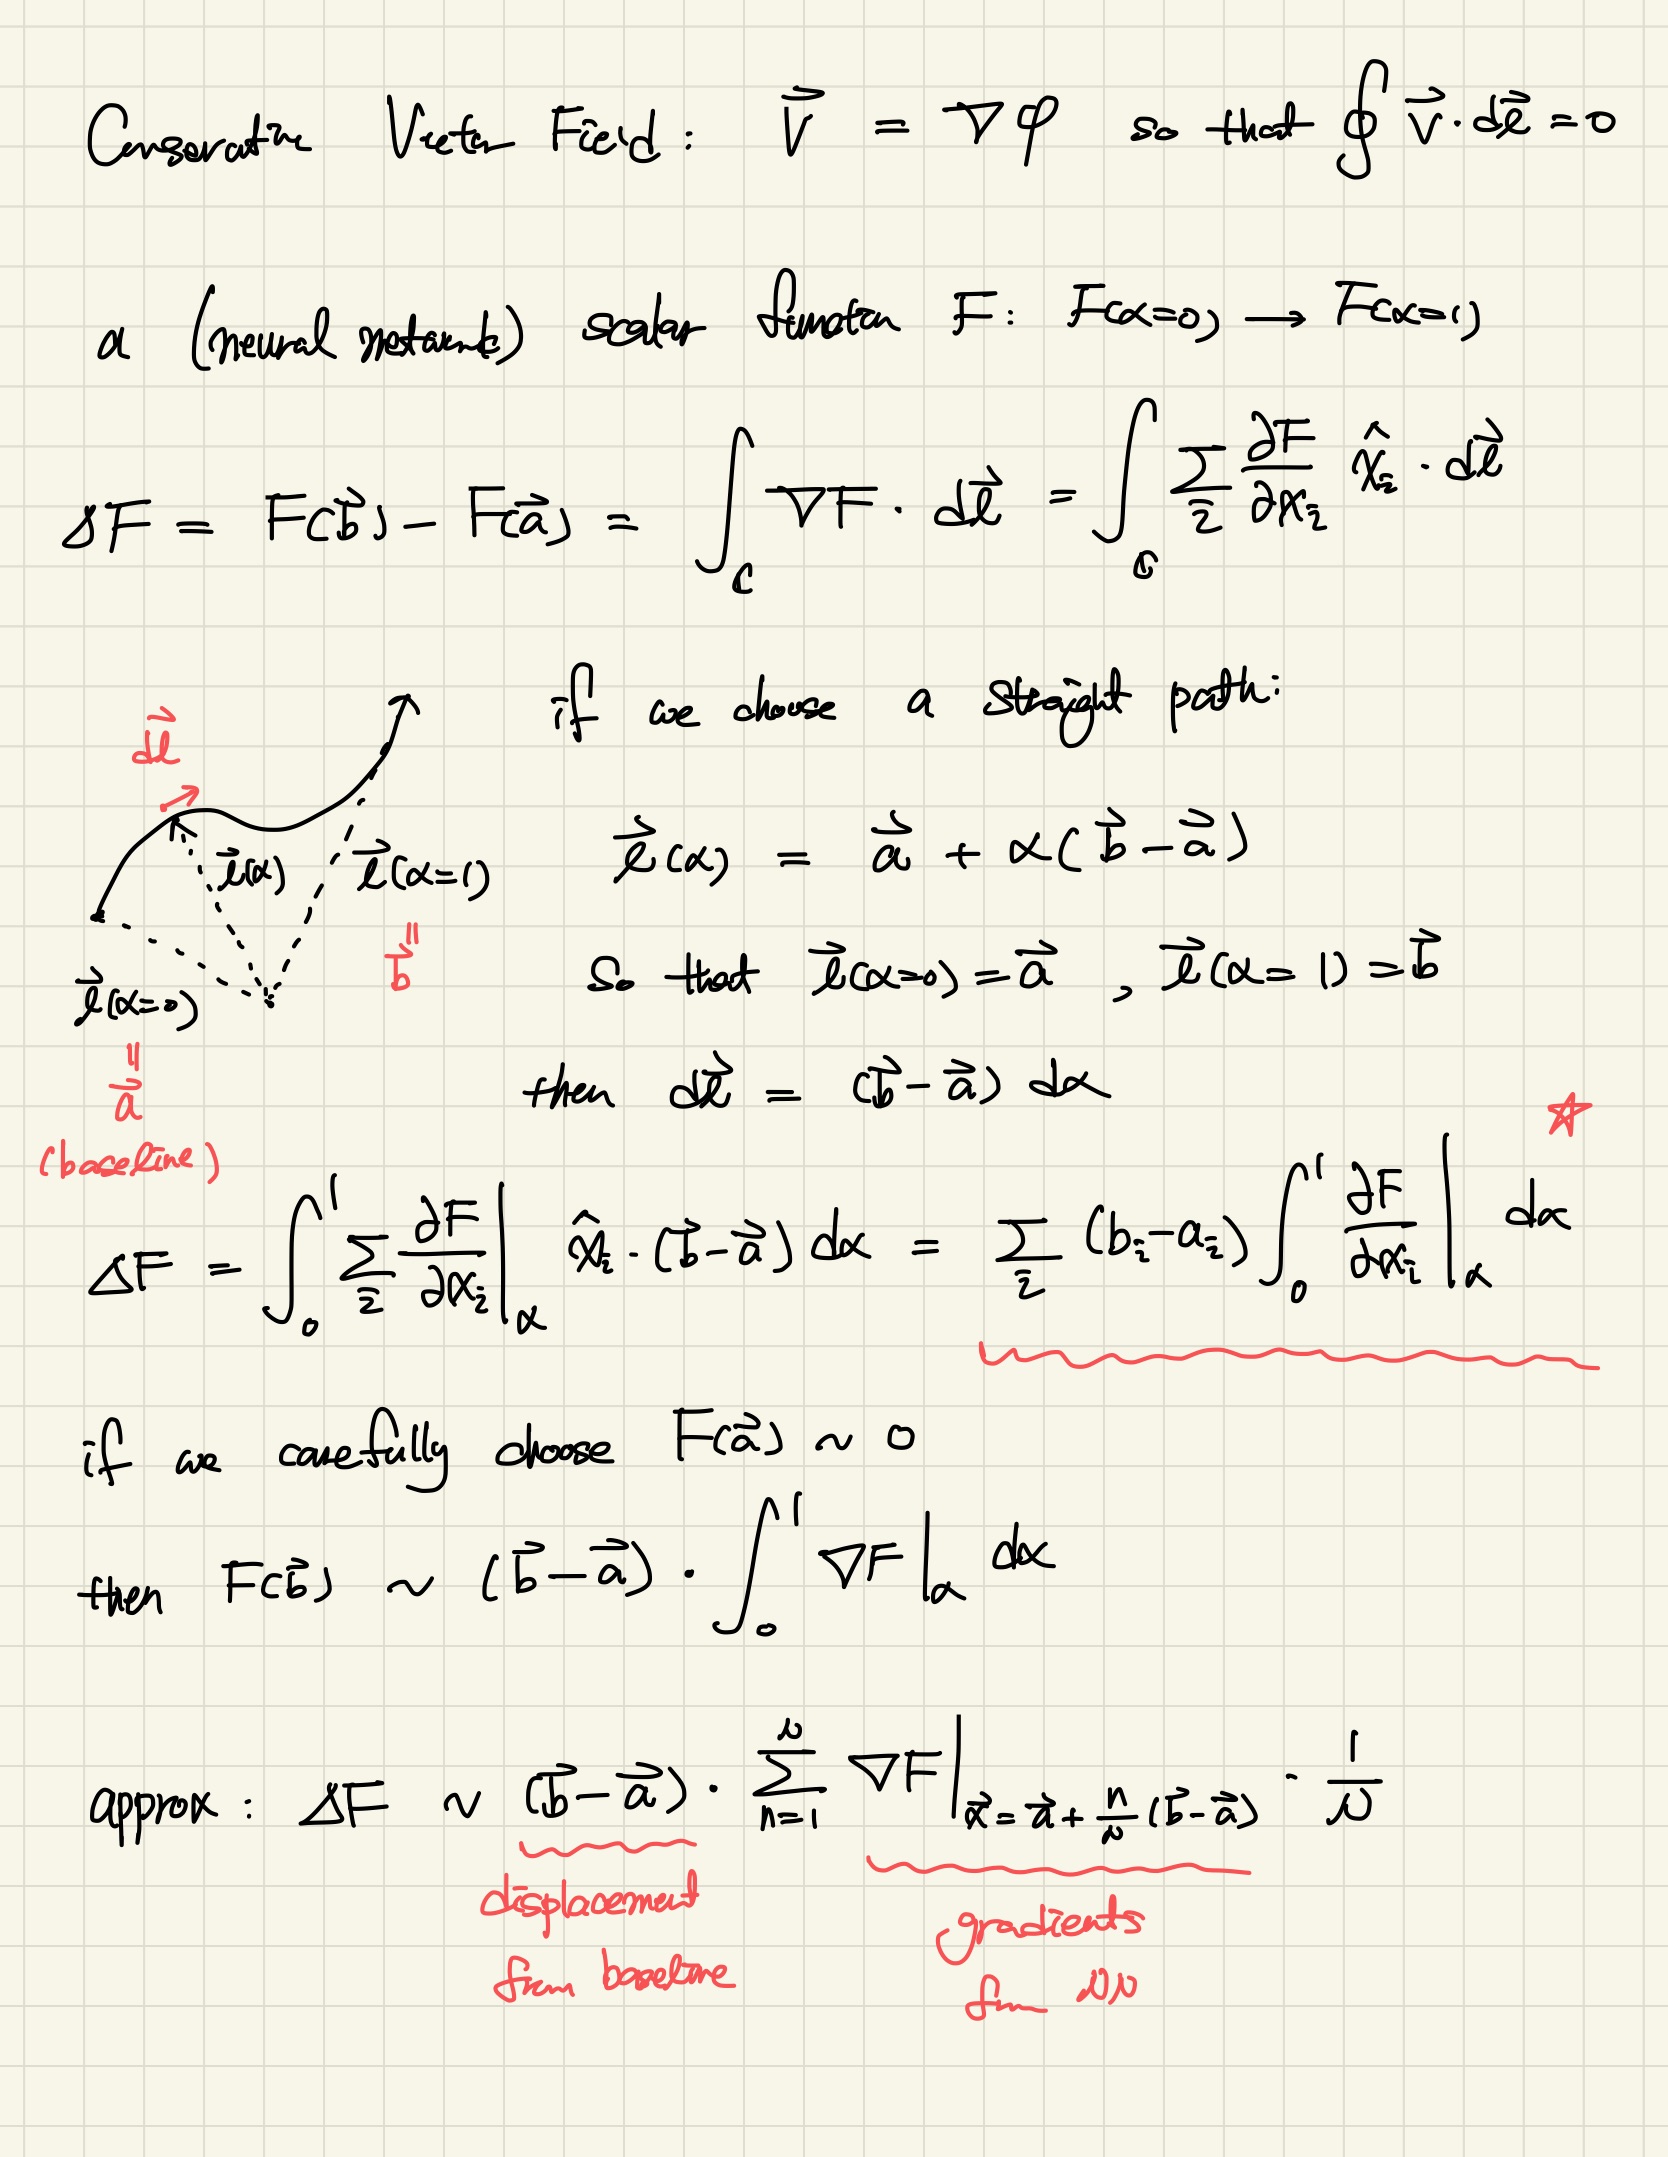 Conservative Vector Field: V⃗ = ∇φ so that ∮ V⃗ · dℓ⃗ = 0
a (neural network) scalar function F: F(α=0) → F(α=1)
ΔF = F(b⃗) − F(a⃗) = ∫_C ∇F · dℓ⃗ = ∫_C Σ_i ∂F/∂x_i x̂_i · dℓ⃗
if we choose a straight path:
dℓ⃗
ℓ⃗(α)
ℓ⃗(α=1)
= b⃗
ℓ⃗(α=0)
= a⃗
(baseline)
ℓ⃗(α) = a⃗ + α(b⃗ − a⃗)
so that ℓ⃗(α=0) = a⃗ , ℓ⃗(α=1) = b⃗
then dℓ⃗ = (b⃗ − a⃗) dα
ΔF = ∫_0^1 Σ_i ∂F/∂x_i |_α x̂_i · (b⃗ − a⃗) dα = Σ_i (b_i − a_i) ∫_0^1 ∂F/∂x_i |_α dα ☆
if we carefully choose F(a⃗) ~ 0
then F(b⃗) ~ (b⃗ − a⃗) · ∫_0^1 ∇F |_α dα
approx: ΔF ~ (b⃗ − a⃗) · Σ_{n=1}^N ∇F |_{x⃗ = a⃗ + n/N (b⃗ − a⃗)} · 1/N
displacement
from baseline
gradients
from NN